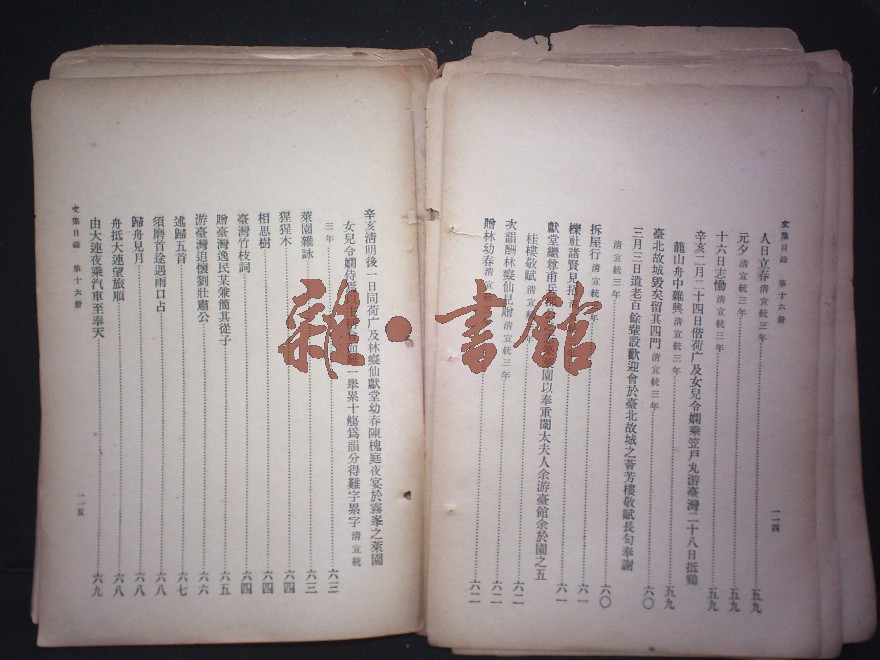 文集目錄 第十六册
一一四
人日立春 清宣統三年 五九
元夕 清宣統三年 五九
十六日志慟 清宣統三年 五九
辛亥二月二十四日偕荷广及女兒令嫻乘笠戶丸游臺灣二十八日抵鷄
籠山舟中雜興 清宣統三年 五九
臺北故城毀矣留其四門 清宣統三年 六〇
三月三日遺老百餘輩設歡迎會於臺北故城之薈芳樓敬賦長句奉謝
清宣統三年 六〇
拆屋行 清宣統三年 六一
櫟社諸賢見招 年 六一
獻堂繼尊甫兵部 園以奉重闈太夫人余游臺館余於園之五
桂樓敬賦 清宣統三年 六二
次韻酬林癡仙見贈 清宣統三年 六二
贈林幼春 清宣統三年 六二
辛亥清明後一日同荷广及林癡仙獻堂幼春陳槐庭夜宴於霧峯之萊園
女兒令嫻侍 一舉累十觴爲韻分得難字累字 清宣統
三年 六三
萊園雜詠 六三
猩猩木 六四
相思樹 六四
臺灣竹枝詞 六四
贈臺灣逸民某兼簡其從子 六五
游臺灣追懷劉壯肅公 六六
述歸五首 六七
須磨首途遇雨口占 六八
歸舟見月 六八
舟抵大連望旅順 六八
由大連夜乘汽車至奉天 六九
文集目錄 第十六册
一一五
雜·書館